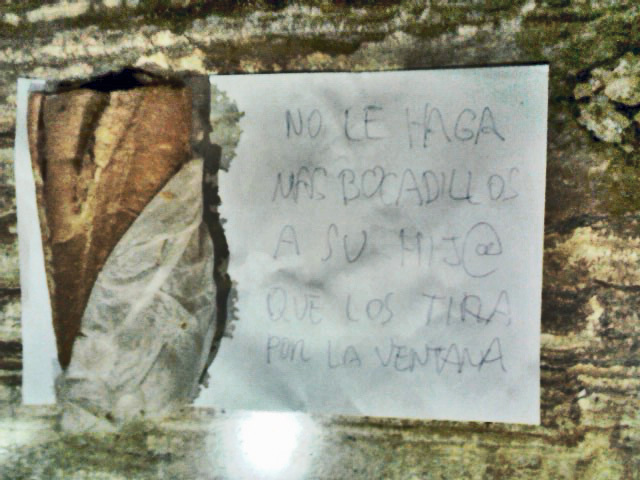 NO LE HAGA
MAS BOCADILLOS
A SU HIJ@
QUE LOS TIRA
POR LA VENTANA